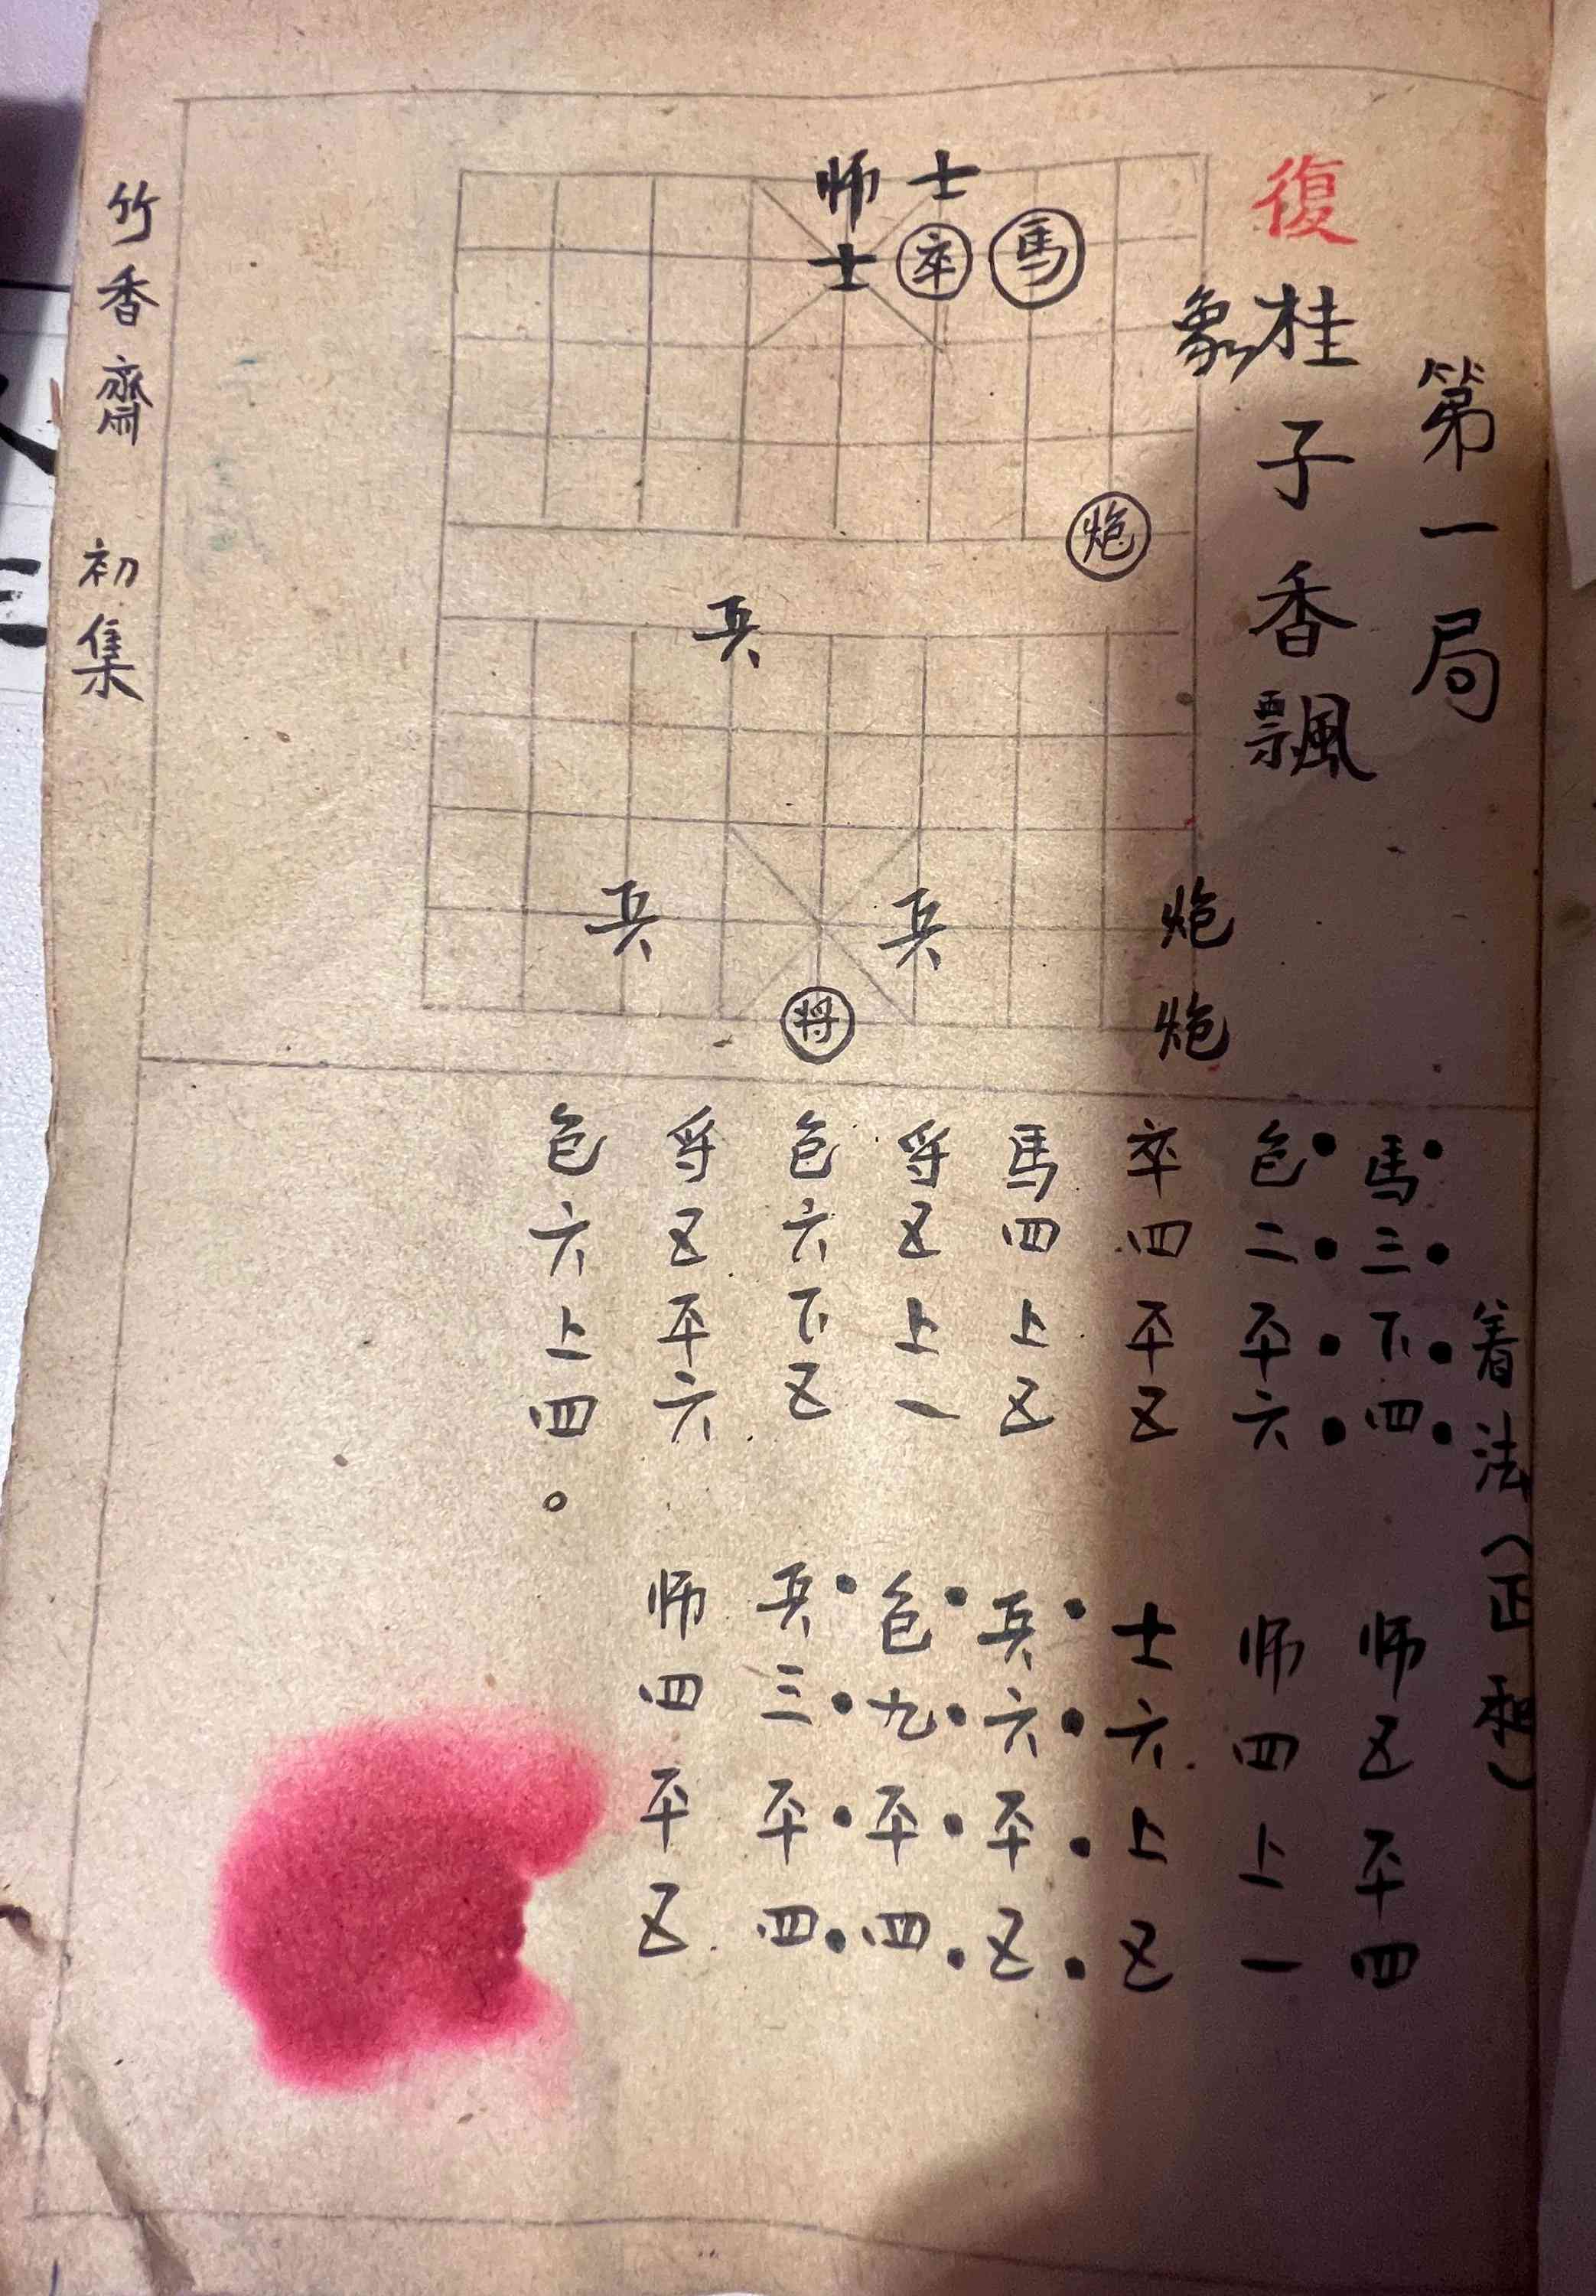 第一局
復
桂子香飄
師士
士卒馬
象
炮
兵
兵兵炮
将炮
着法（正和）
馬三下四 师五平四
包二平六 师四上一
卒四平五 士六上五
馬四上五 兵六平五
将五上一 包九平四
包六下五 兵三平四
将五平六 师四平五
包六上四。
竹香齋 初集